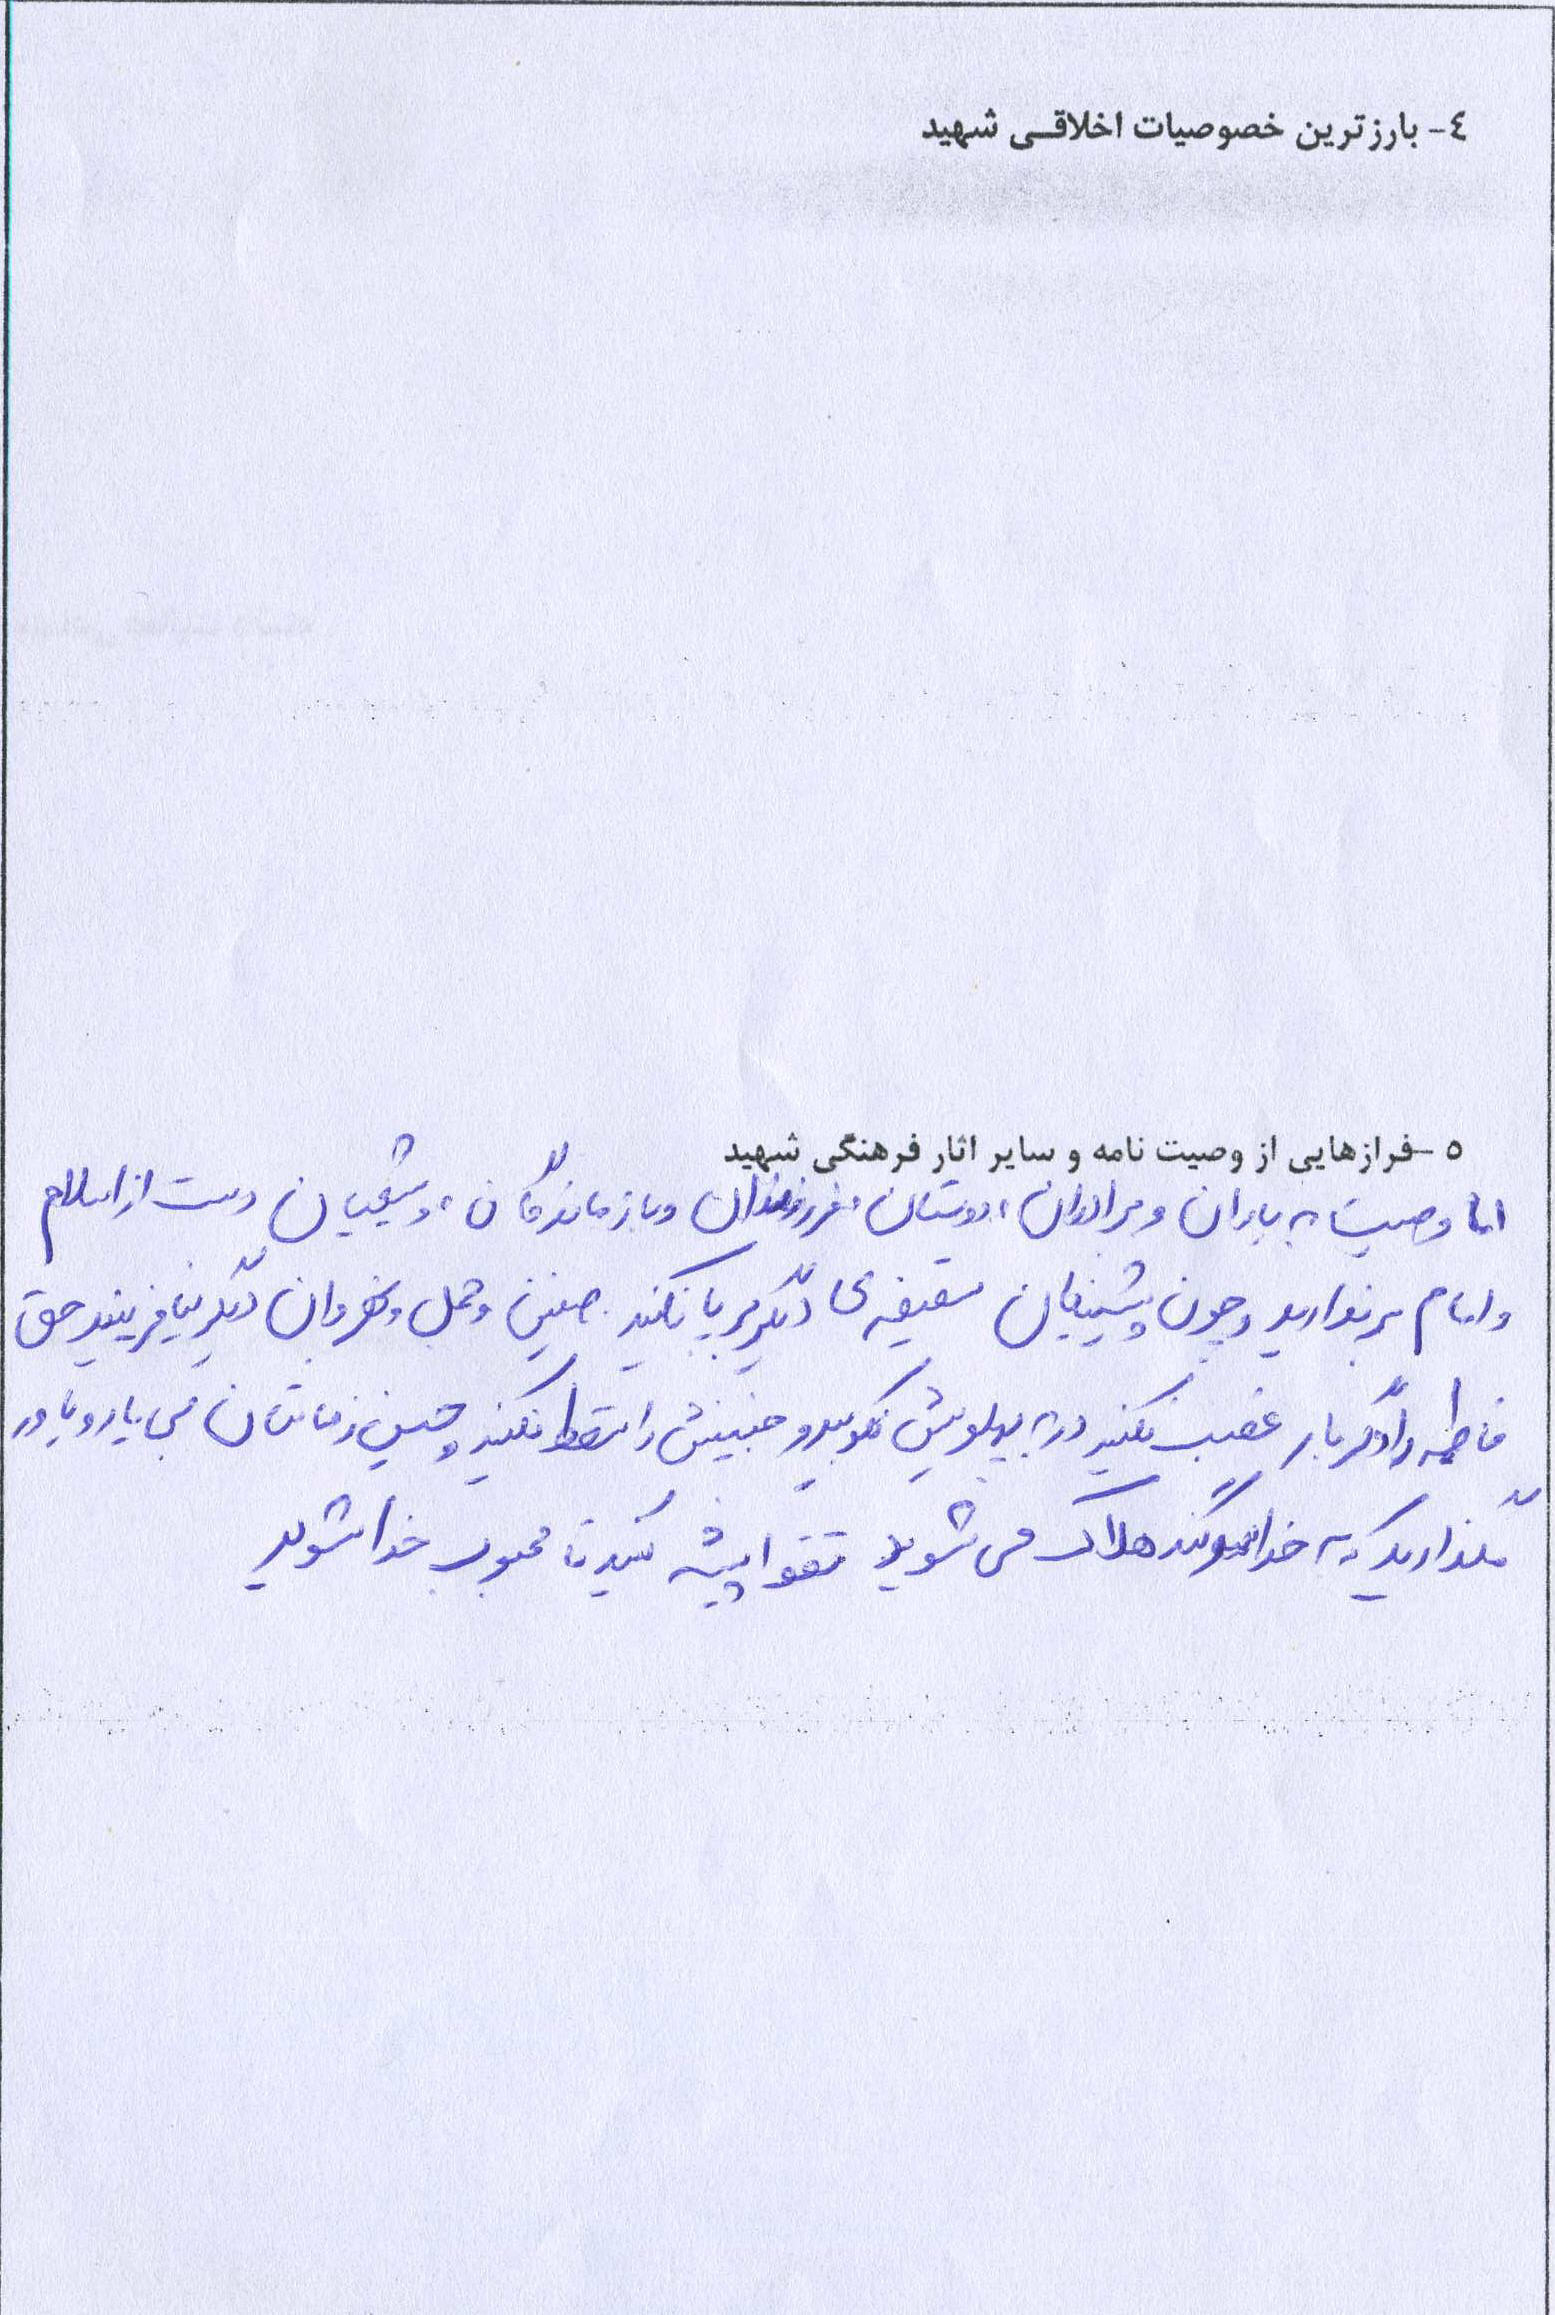 ٤- بارزترین خصوصیات اخلاقی شهید
٥- فرازهایی از وصیت نامه و سایر اثار فرهنگی شهید
اما وصیت به یاران و برادران، دوستان، فرزندان و بازماندگان، و شیعیان دست از اسلام
و امام برندارید و چون پیشینیان سقیفه ی دیگر بر پا نکنید. صفین و جمل و نهروان دیگر نیافرینید حق
فاطمه را دگر بار غصب نکنید در به پهلویش نکوبید و جنینش را سقط نکنید و حسین زمانتان بی یار و یاور
نگذارید که به خدا سوگند هلاک می شوید تقوا پیشه کنید تا محبوب خدا شوید